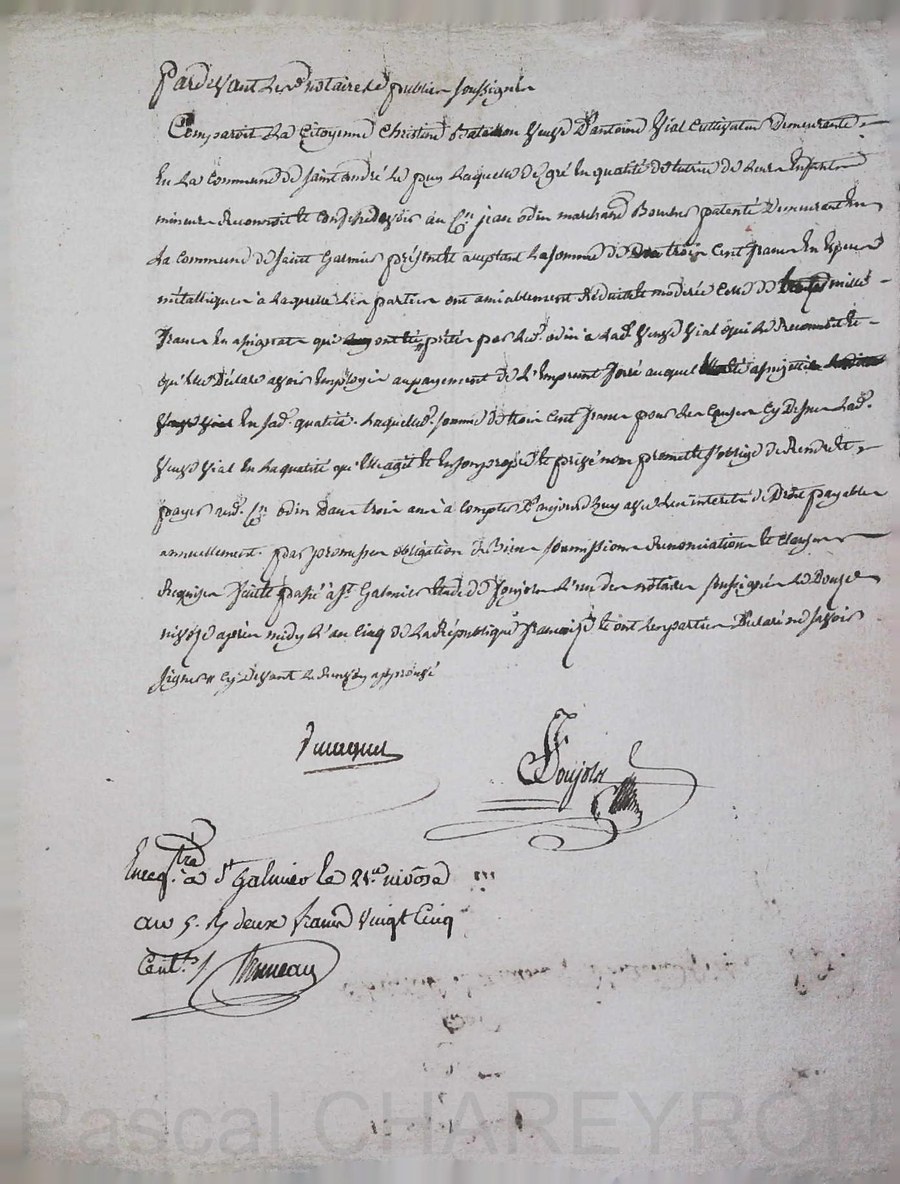 Pardevant les notaires publics soussignés
Comparoit la Citoyenne Christine Bataillon veuve d'antoine vial cultivateur demeurante
en la commune de saint andré le puy laquelle de gré en qualité de tutrice de leurs enfants
mineurs reconnoit et confesse devoir au Cen. jean odin marchand patenté demeurant en
la commune de saint Galmier présent et acceptant la somme de trois cent francs en especes
métalliques à laquelle les parties ont amiablement réduit et modéré celle de mille
francs en assignats qui ont été prétés par led. odin a lad. veuve vial qui le reconnoit et
qu'elle déclare avoir employés au payement de l'emprunt forcé auquel assujettie
veuve vial en sad. qualité. laquelle d. somme de trois cent francs pour les causes cy dessus lad.
veuve vial en la qualité qu'elle agit et en son propre et privé nom promet et s'oblige de rendre et
payer aud. Cen. odin dans trois ans à compter d'aujourd'huy avec les interets de droit payables
annuellement. par promesses obligation de biens soumissions renonciations et clauses
requises fait et passé à St. Galmier étude de foujols l'un des notaires soussignés le douze
nivose après midy l'an cinq de la république françoise et ont les parties déclaré ne savoir
signer cy devant le renvoy approuvé
foujols
Enregtré. à St Galmier le 21e. nivose
an 5. R deux francs vingt cinq
Centes.
Pascal CHAREYRON